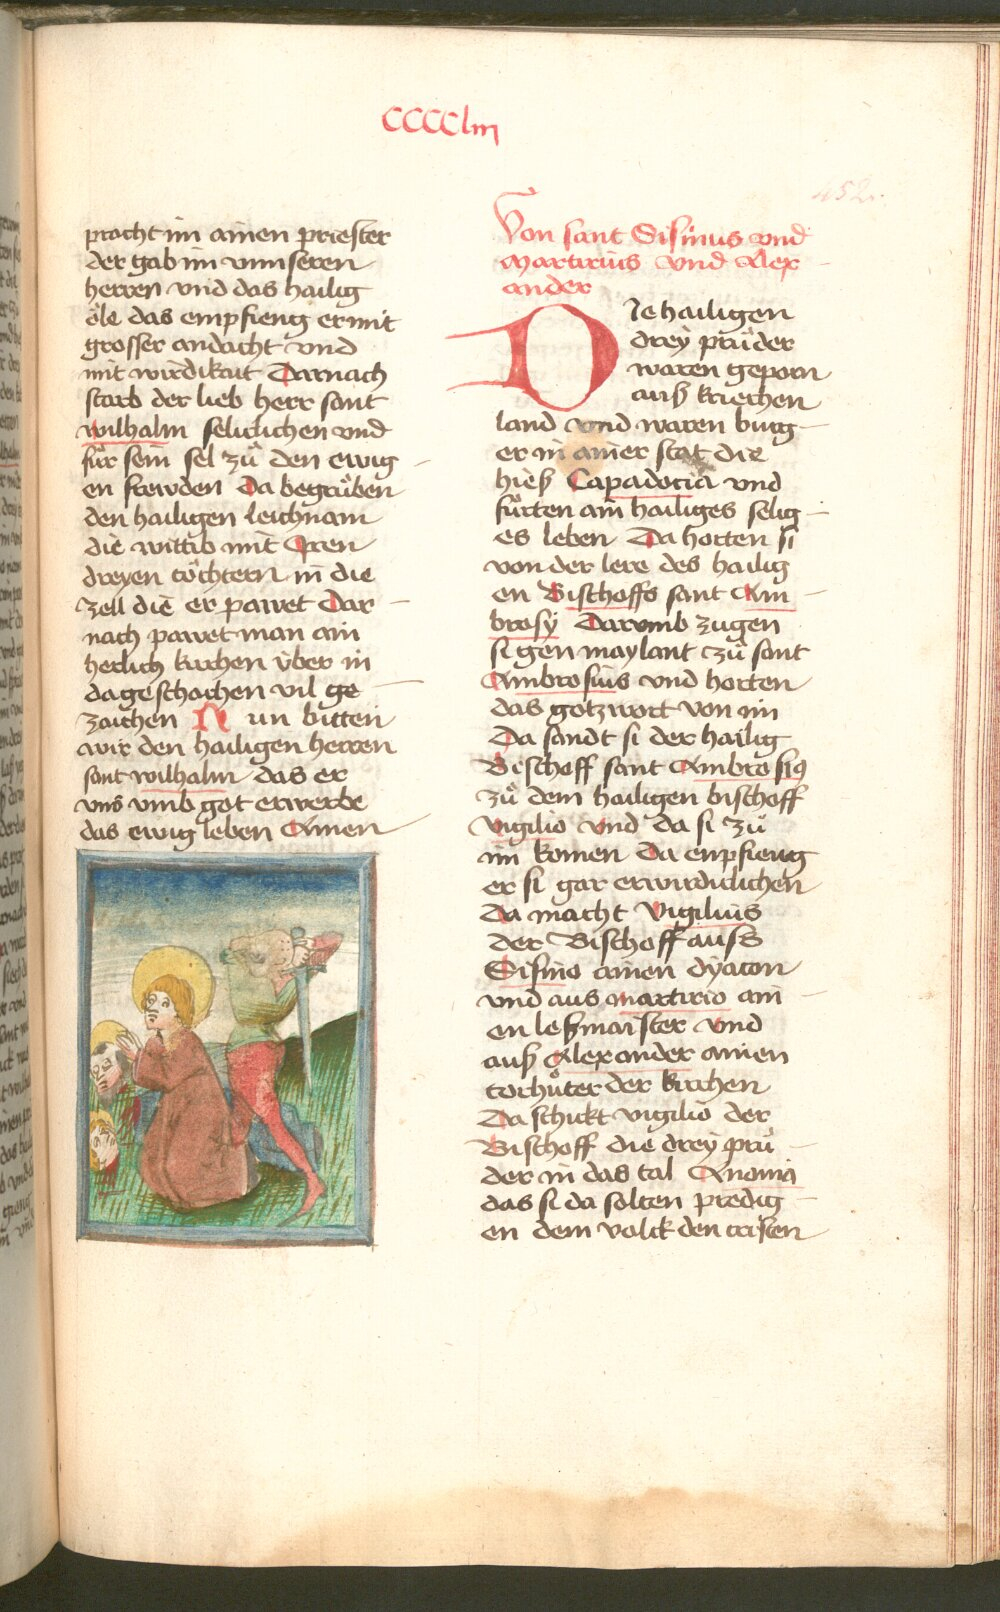 CCCClııı
452.
pracht im ainen priester
der gab im vnnseren
herren vnd das hailig
öle das empfieng er mit
grosser andacht vnd
mit wirdikait Darnach
starb der lieb herr sant
wilhalm seliclichen vnd
für sein sel zů den ewig
en frewden Da begrůben
den hailigen leichnam
die wittib mit Iren
dreyen töchtern in die
zell die er pawet Dar
nach pawet man ain
herlich kirchen vber in
da geschachen vil ge
zaichen Nun bitten
wir den hailigen herren
sant wilhalm das er
vns vmb got erwerbe
das ewig leben Amen
Von sant Sisinius vnd
Martirius vnd Alex
ander
Die hailigen
drey prüder
waren geporn
auß kriechen
land vnd waren burg
er in ainer stat die
hieß Capadocia vnd
fürten ain hailiges selig
es leben Da horten si
von der lere des hailig
en Bischoffs sant Am
brosy Darvmb zugen
si gen maylant zů sant
Ambrosius vnd horten
das gotzwort von im
Da sandt si der hailig
Bischoff sant Ambrosius
zů dem hailigen bischoff
Vigilio vnd da si zů
im komen Da enpfieng
er si gar erwirdiclichen
Da macht Vigilius
der Bischoff auss
Sisinio ainen dyacon
vnd aus martirio ain
en leßmaister vnd
auß Alexander ainen
torhůter der kirchen
Da schickt vigilio der
Bischoff die drey prü
der in das tal Anonia
das si da solten predig
en dem volck den cristen